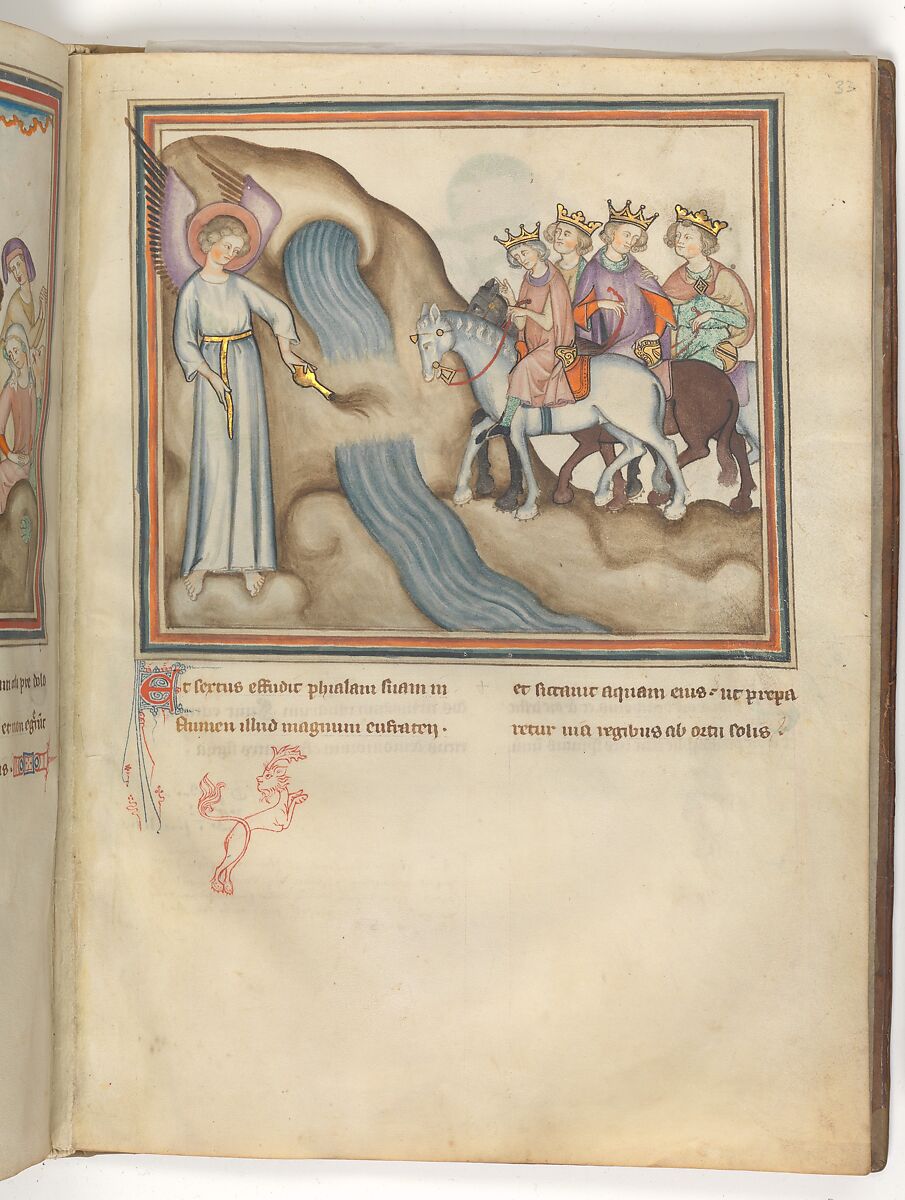 33
Et sextus effudit phialam suam in
flumen illud magnum eufraten ·
et siccauit aquam eius · ut prepa
retur uia regibus ab ortu solis